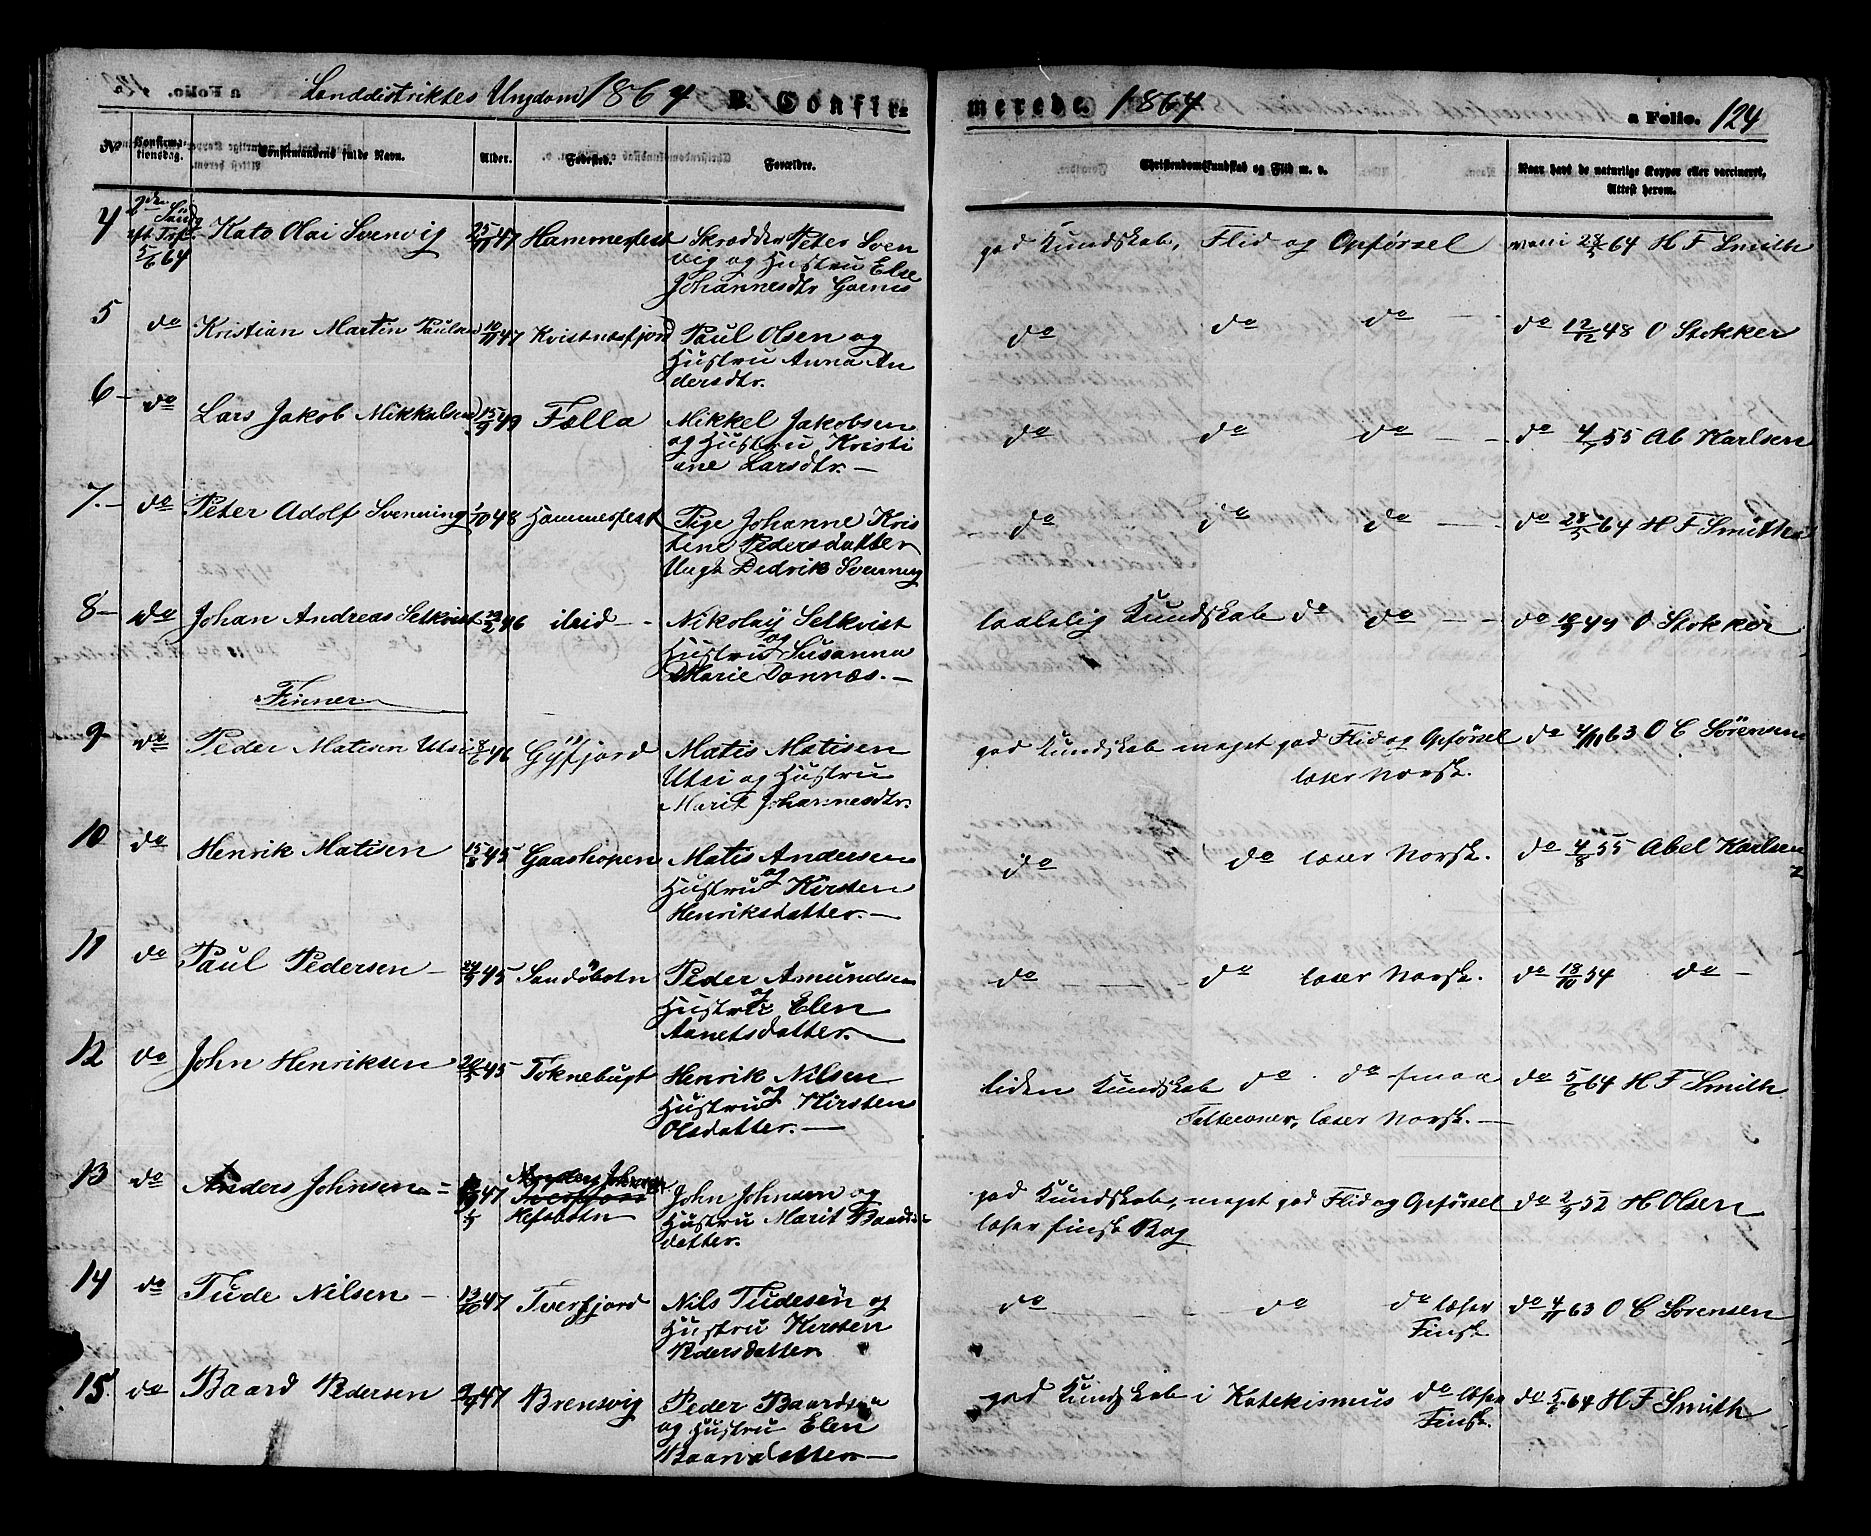 Landdistriktes Ungdom 1864 B. Confir-
merede. 1864 a Folio. 124
No Konfirma-
tionsdag. Confirmandens fulde Navn. Alder. Fødested. Forældre. Christendomskundskab og Flid m. v. Naar havt de naturlige Kopper eller vaccineret,
Attest herom.
4 2den Sönd
eft Trf.
5/6 64 Kato Olai Svenvig 25/11 47 Hammerfest Skrædder Peter Sven
vig og Hustru Else
Johannesdtr Gaenes
god Kundskab, Flid og Opførsel vacci 28/5 64 H F Smith
5 do Kristian Martin Paulsen 10/10 47 Kvistnæsfjord Paul Olsen og
Hustru Anna An
dersdtr.
do do do do 12/12 48 O Stokker
6 do Lars Jakob Mikkelsen 15/9 49 Fælla Mikkel Jakobsen
og Hustru Kristi
ane Larsdtr.
do do do do 4/7 55 Ab Karlsen
7. do Peter Adolf Svenning 1/10 48 Hammerfest Pige Johanne Kris
tine Pedersdatter
Ungk Dedrik Svenning
do do do do 28/5 64 H F Smith
8 do Johan Andreas Selkvist 22/2 46 ibid Nikolaÿ Selkvist
og
Hustru Susanna
Marie Dønnæs.
taalelig Kundskab do do do 18/9 49 O Stokker
Finner
9 do Peder Matisen Utsi 8/6 46 Gÿfjord Matis Matisen
Utsi og Hustru
Marit Johannesdtr.
god Kundskab meget god Flid og Opførsel do 4/11 63 O C Sørensen
læser Norsk.
10 do Henrik Matisen 15/8 45 Gaashopen Matis Andersen
og
Hustru Kirsten
Henriksdatter.
do do læser Norsk. do 4/8 55 Abel Karlsen
11 do Paul Pedersen 24/9 45 Sandöbotn Peder Amundsen
og
Hustru Elen
Aanetsdatter.
do do læser Norsk. do 18/10 54 do
12 do John Henriksen 20/5 45 Toknebugt Henrik Nilsen
og
Hustru Kirsten
Olsdatter.
liden Kundskab do do smaa do 5/6 64 H F Smith
Fatteevner, læser Norsk.
13 do Anders Johnsen 47
Kefsbotn John Johnsen og
Hustru Marit Baards
datter.
god Kundskab, meget god Flid og Opførsel do 2/9 52 H Olsen
læser finsk Bog
14 do Tude Nilsen 13/10 47 Tverfjord Nils Tudesen og
Hustru Kirsten
Pedersdatter
do do do læser do 4/11 63 O C Sørensen
Finsk
15. do Baard Pedersen 2/9 47 Brensvig Peder Baardsen
og Hustru Elen
Baardsdatter
god Kundskab i Katekismus do læser do 5/6 64 H F Smith
Finsk.